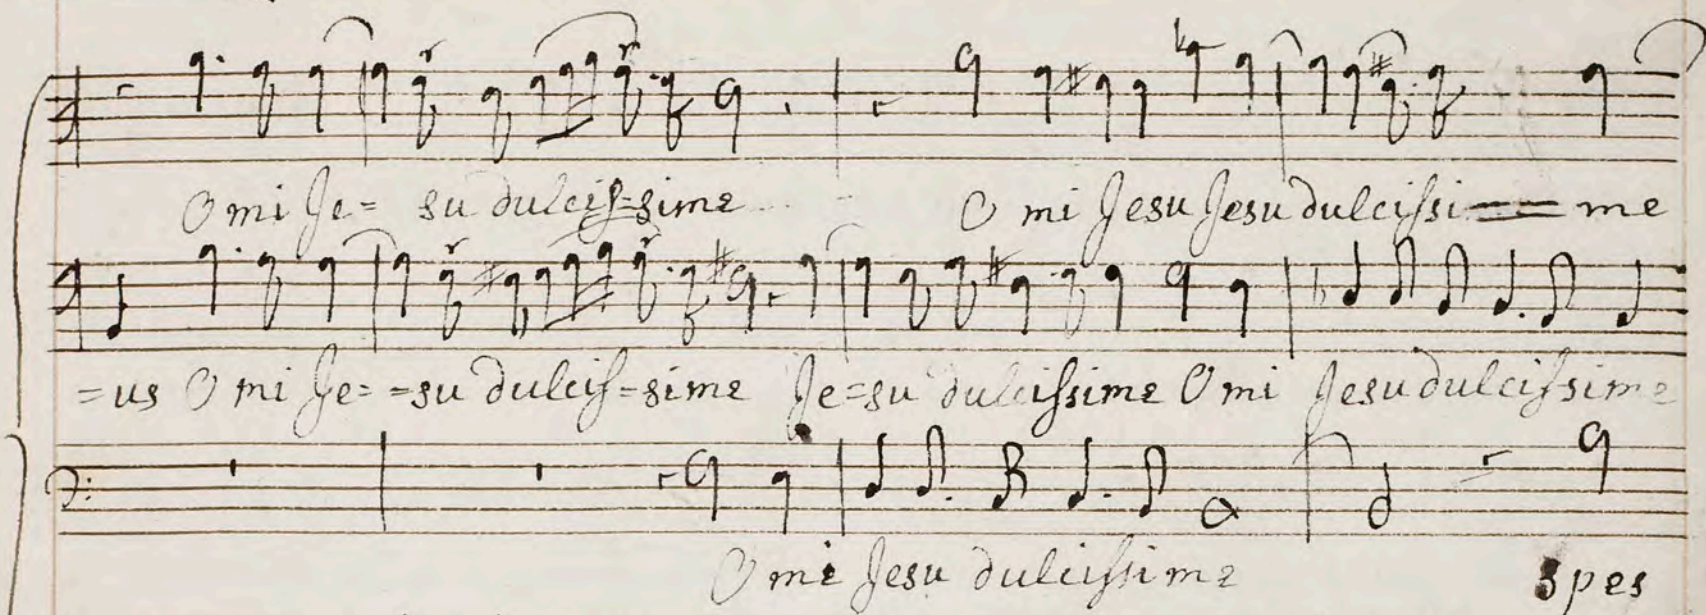 O mi Je= su dulcis=sime O mi Jesu Jesu dulcissi== me
=us O mi Je= =su dulcis=sime Je=su dulcissime O mi Jesu dulcissime
O mi Jesu dulcissime spes